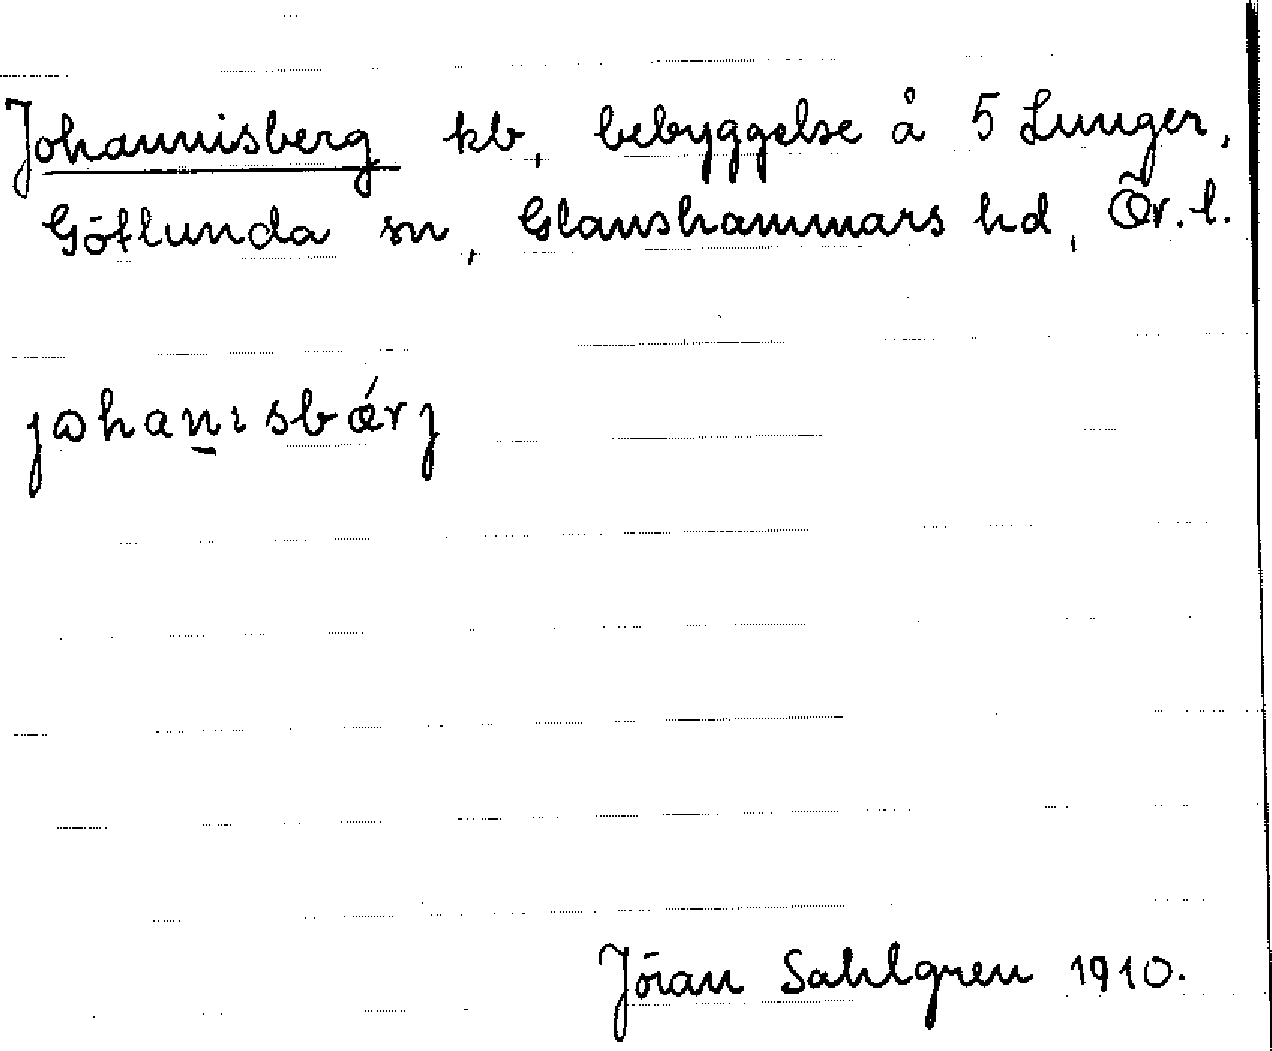 Johannisberg kb, bebyggelse å 5 Lunger,
Götlunda sn, Glanshammars hd, Ör. l.
johanısbǽrj
Jöran Sahlgren 1910.